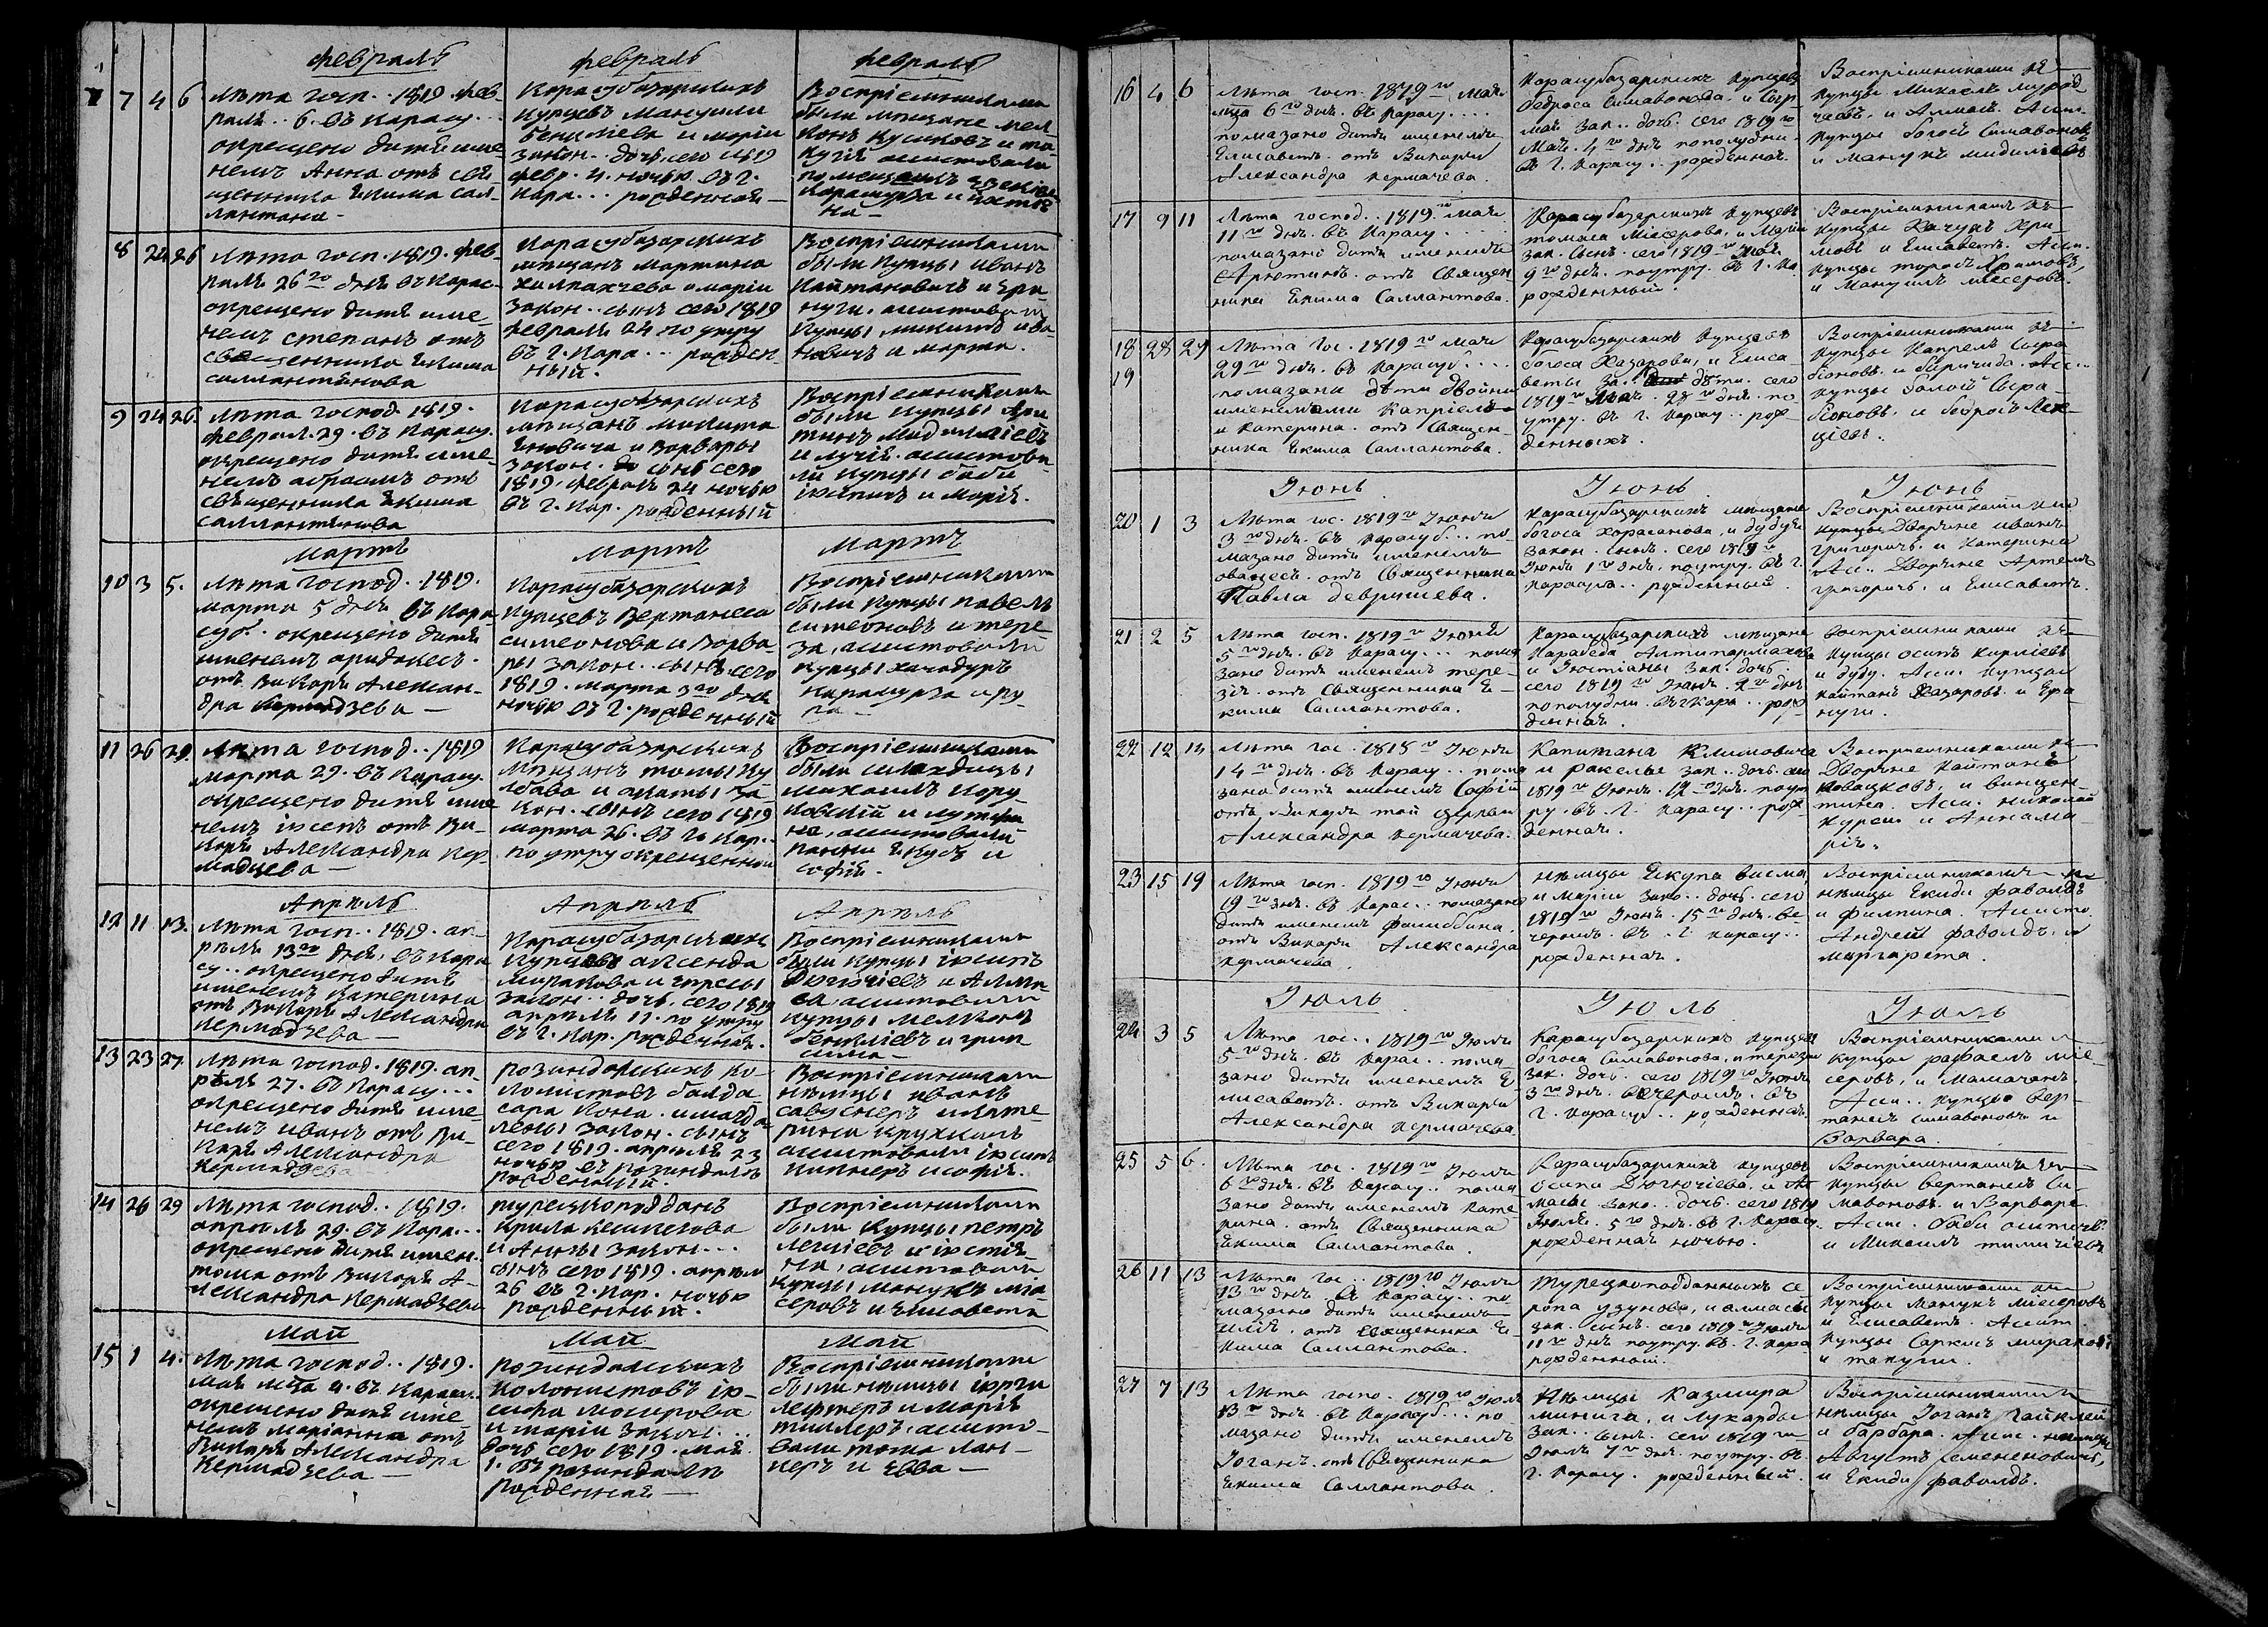 февраль
февраль
февраль
7 4 6
лѣта госп.. 1819. фев-
раля.. 6. въ Карасу..
окрещено дитя име-
немъ Анна отъ свя-
щенника Екима сал-
лантана -
Карасубазарскихъ
купцевъ Манушли
и маріи
закон.. дочь, сего 1819
февр. 4. ночью въ г.
Кара... рожденная -
Воспріемниками
были мещане мел-
конъ Кушновъ и та-
кугія ассистовали
помещикъ
Карамурза и
на -
8 24 26
лѣта госп. 1819. фев-
раля 26го дня въ Карас-
окрещено дитя име-
немъ степанъ отъ
священника Екима
саллантанова
Карасубазарскихъ
мещанъ мартина
халпахчева и маріи
закон.. сынъ сего 1819
февраля 24 по утру
въ г. Кара... рожден-
ный.
Воспріемниками
были купцы иванъ
Кайтановичъ и Ера-
нуги, ассистовали
купцы никита ива-
новичъ и марта.
9 24 26.
лѣта господ. 1819.
феврал. 29. въ Карасу.
окрещено дитя име-
немъ абраамъ отъ
священника Екима
саллантянова
Карасубазарскихъ
мещанъ никита
Еновича и варвары
закон. сынъ сего
1819. февраля 24 ночью
въ г. Кар. рожденный
Воспріемниками
были купцы
и лучія. ассистова-
ли купцы баби
іосипъ и марія.
мартъ
мартъ
мартъ
10 3 5.
лѣта господ. 1819.
марта 5 дня въ Кара-
суб.. окрещено дитя
именемъ аридакесъ.
отъ Викарія Алексан-
дра Кермадзева -
Карасубазарскихъ
купцевъ Вертанеса
симеонова и Варва-
ры закон.. сынъ сего
1819. марта 3го дня
ночью въ г. рожденный
Воспріемниками
были купцы павелъ
симеоновъ и тере-
за, ассистовали
купцы хачадуръ
Карамурза и ру-
11 26 29.
лѣта господ.. 1819
марта 29. въ Карасу.
окрещено дитя име-
немъ іосепъ отъ Ви-
карія Александра Кер-
мадцева -
Карасубазарскихъ
мещанъ томы Ку
и агаты за-
кон. сынъ сего 1819
марта 26. въ г. Кар..
по утру окрещенной
Воспріемниками
были
михаилъ Кору-
на, ассистовали
Екубъ и
софія.
Апрѣль
Апрѣль
Апрѣль
12 11 13.
лѣта госп.. 1819. ап-
рѣля 13го дня, въ Кара
су.. окрещено дитя
именемъ Катерина
отъ Викарія Александра
Кермадзева -
Карасубазарскихъ
купцевъ аксенда
миракова и терезы
закон.. дочь, сего 1819
апрѣля 11. по утру
въ г. Кар. рожденная.
Воспріемниками
были купцы іосипъ
Дюгючіевъ и Алма-
са, ассистовали
купцы мелконъ
13 23 27.
лѣта господ. 1819. ап-
рѣля 27. въ Карасу...
окрещено дитя име-
немъ иванъ отъ Ви-
карія Александра
Кермадзева
розендальскихъ ко-
лонистовъ балда-
сара Кона. и магда
лены закон. сынъ
сего 1819. апрѣля 23
ночью въ розендалѣ
рожденный.
Воспріемниками
нѣмцы иванъ
и кате-
рина
ассистовали іосипъ
и софія.
14 26 29
лѣта господ.. 1819.
апрѣля 29. въ Кара...
окрещено дитя имен.
тома отъ Викарія А-
лександра Кермадзева
турецкоподдан.
и Анны закон...
сынъ сего 1819. апрѣля
26 въ г. Кар. ночью
рожденный.
Воспріемниками
были купцы петръ
ассистовали
купцы манукъ міс-
серовъ и елисавета
май
май
май
15 1 4.
лѣта господ.. 1819.
мая мца 4. въ Карасу.
окрещено дитя име-
немъ маріанна отъ
Викарія Александра
Кермадзева -
розендальскихъ
колонистовъ іо-
сифа
и маріи закон...
дочь сего 1819. мая
1. въ розендалѣ
рожденная -
Воспріемниками
были нѣмцы
и марія
ассисто-
вали тома лан-
неръ и Евва -
16 4 6
Лѣта госп. 1819го Мая
мца 6го дня. въ Карасу....
помазано дитя именемъ
Елисаветъ. отъ Викарія
Александра Кермачева.
Карасубазарскихъ купцевъ
бедроса Симавонова, и
зак.. дочь. сего 1819го
Мая. 4го дня пополудни
въ г. Карасу.. рожденная.
Воспріемниками
купцы Микаелъ
и Алмасъ. Асси.
купцы богосъ Симавоновъ
и Манукъ
17 9 11
Лѣта господ.. 1819го Мая
11го дня. въ Карасу....
помазано дитя именемъ
Арютинъ. отъ Священ-
ника Екима Саллантова.
Карасубазарскихъ купцевъ
томаса Місерова, и Маріи
зак. сынъ. сего 1819го Мая.
9го дня. поутру. въ г. Ка.
рожденный.
Воспріемниками
купцы Качукъ
и Елисаветъ. Асси.
купцы торосъ Храмовъ,
и Манушъ Місеровъ.
18 28 29
19
Лѣта гос. 1819го Мая
29го дня. въ Карасуб....
помазаны дѣти двойни
именемами Капріелъ
и Катерина. отъ Священ-
ника Екима Саллантова.
Карасубазарскихъ купцевъ
богоса Казарова, и Елиса-
веты за.. дѣти. сего
1819го Мая. 28го дня. по
утру. въ г. Карасу.. рож-
денныхъ.
Воспріемниками
купцы Капрелъ Сера-
біоновъ. и
купцы Сера-
біоновъ. и бедросъ
Іюнь
Іюнь
Іюнь
20 1 3
Лѣта гос. 1819го Іюня
3го дня. въ Карасуб... по-
мазано дитя именемъ
ованесъ. отъ Священника
Павла девришева.
Карасубазарскихъ мещане
богоса Хорасанова, и дудуги
закон. сынъ. сего 1819го
Іюня 1го дня, поутру. въ г.
Карасуа.. рожденный.
Воспріемниками
Дворяне иванъ
григоричъ. и Катерина
Асс. Дворяне Артемъ
григоричъ. и Елисаветъ.
21 2 5
Лѣта госп. 1819го Іюня
5го дня. въ Карасу... пома
зано дитя именемъ тере-
за. отъ Священника Е-
кима Саллантова.
Карасубазарскихъ мещане
Карабеда Алтипармакова
и Іюстіаны зак. дочь.
сего 1819го Іюня. 2го дня
пополудни. въ г Кара.. рож-
денная.
Воспріемниками
купцы осипъ
и дуду. Асси. купцы
кайтанъ Казаровъ. и Ера-
нуги.
22 12 14
Лѣта гос. 1818го Іюня
14го дня. въ Карасу.. пома
зано дитя именемъ Софій
отъ Викарія той церкви
Александра Кермачева.
Капитана Климовича
и ракелы зак.. дочь. сего
1819го Іюня. 12го дня. поут
ру. въ. г. Карасу.. рож-
денная.
Воспріемниками
Дворяне Кайтанъ
и винцен-
тина. Асси. николай
и Аннама-
рія.
23 15 19
Лѣта госп. 1819го Іюня
19го дня. въ Карас.. помазано
дитя именемъ
отъ Викарія Александра
Кермачева.
нѣмцы Екупа
и Маріи зако.. дочь. сего
1819го Іюня. 15го дня. ве-
черомъ. въ. г. Карасу..
рожденная.
Воспріемниками
нѣмцы Екиди фаволдъ
и филипина. Ассисто.
Андрей фаволдъ. и
маргарета.
Іюль
Іюль
Іюль
24 3 5
Лѣта гос.. 1819го Іюля
5го дня. въ Карас.. пома
зано дитя именемъ Е
лисаветъ. отъ Викарія
Александра Кермачева.
Карасубазарскихъ купцевъ
богоса Симавонова, и терезы
зак. дочь. сего 1819го Іюля
3го дня. вечеромъ. въ
г. Карасуб.. рожденная.
Воспріемниками
купцы рафаелъ ме-
серовъ, и Мамачанъ.
Асси.. купцы вер-
танесъ Симавоновъ и
Варвара.
25 5 6.
Лѣта гос. 1819го Іюля
6го дня. въ Карасу.. пома
зано дитя именемъ Кате
рина. отъ Священника
Екима Саллантова.
Карасубазарскихъ купцевъ
осипа Дюгючіева, и Ал
масы зако.. дочь. сего 1819
Іюля. 5го дня. въ г. Карасу.
рожденная ночью.
Воспріемниками
купцы вертанесъ Си-
мавоновъ. и Варваре.
Асси.
и Микаилъ
26 11 13
Лѣта гос.. 1819го Іюля
13го дня. въ Карасу.. по-
мазано дитя именемъ
отъ Священника Е-
кима Саллантова.
Турецкоподданныхъ се-
ропа узунова, и алмасы
зак. сынъ. сего 1819го Іюля
11го дня поутру. въ. г. Кара
рожденный.
Воспріемниками
купцы Манукъ Місеровъ
и Елисаветъ. Ассист.
купцы Саркисъ мираковъ
и такугіи.
27 7 13
Лѣта госпо. 1819го Іюля
13го дня. въ Карасуб... по-
мазано дитя именемъ
Іоганъ. отъ Священника
Екима Саллантова.
Нѣмцы Казмира
минига, и Лукарды
зак.. сынъ. сего 1819го
Іюля 7го дня. поутру. въ
г. Карасу. рожденный.
Воспріемниками
нѣмцы Іоганъ
и барбара. Асси.
Августъ Семеновичъ,
и Екиди фаволдъ.